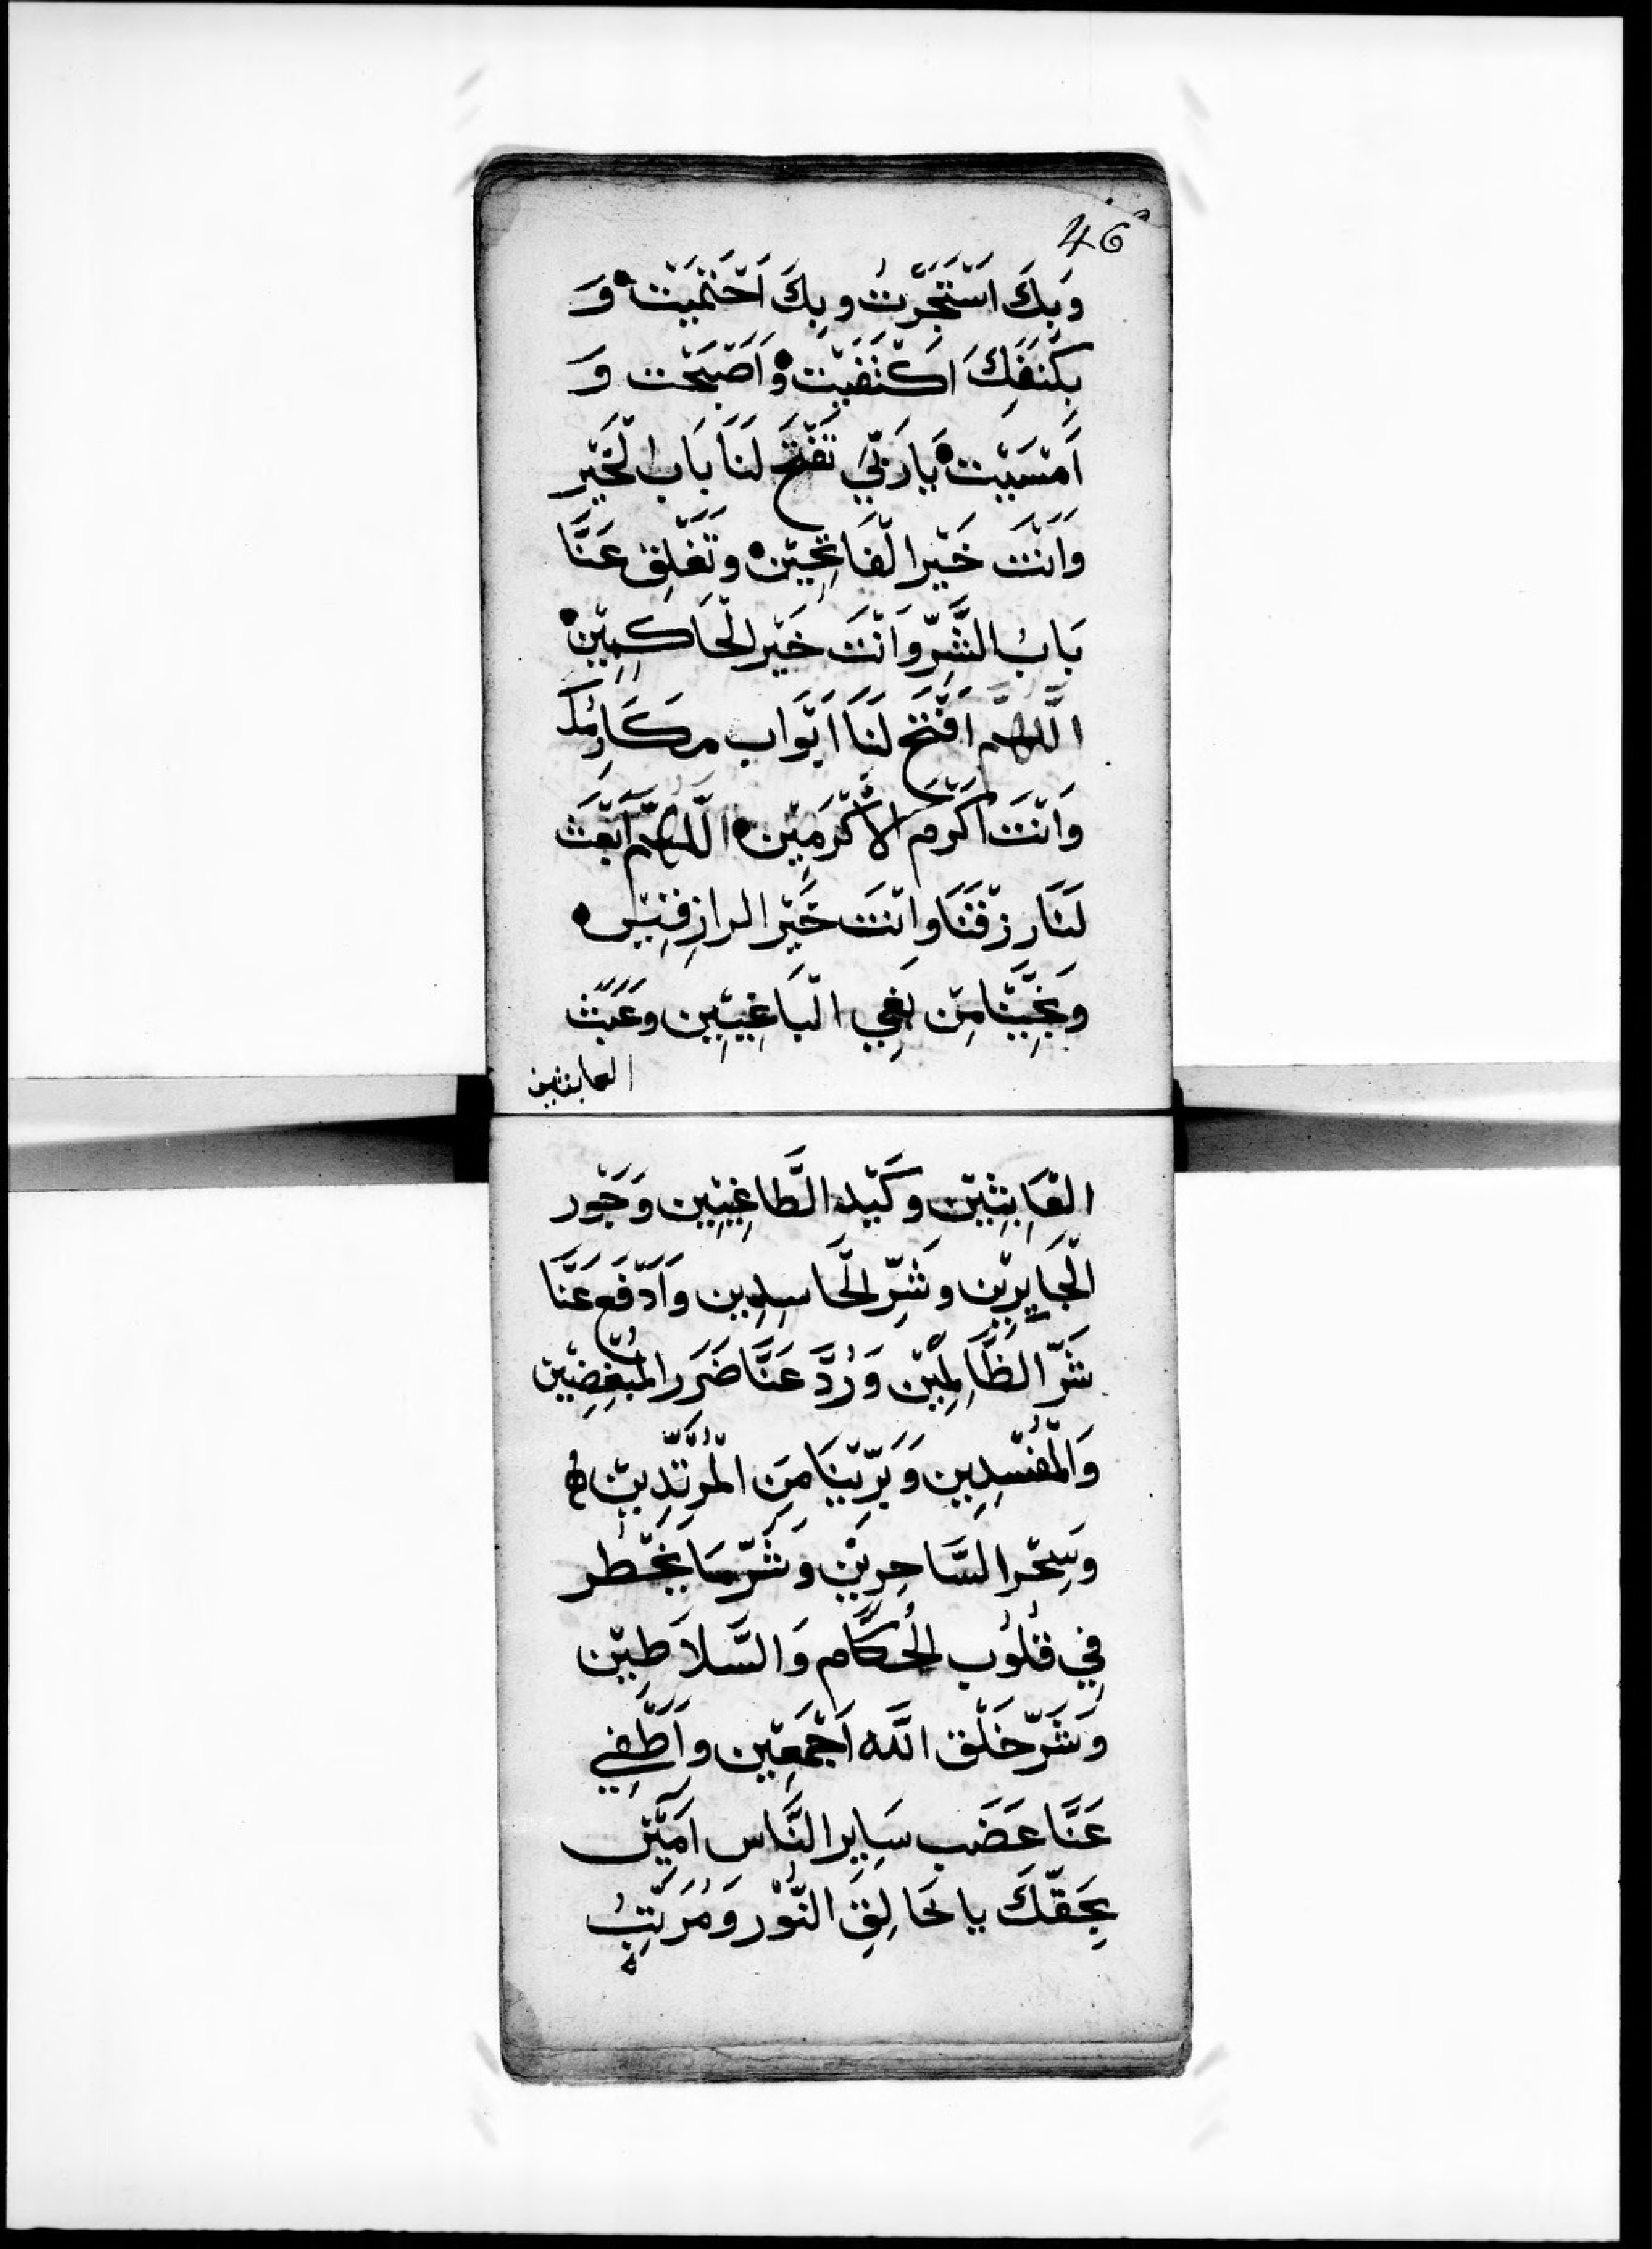 46
وَبِكَ اَسْتَجَرْتُ وبِكَ اَحْتَمَيْت وَ
بِكَنَفِكَ اَكْتَفَيْت وَاَصْبَحْت وَ
اَمْسَيْت يَارَبّي تَفْتَح لَنَا بَاب الْخَيْر
وَاَنْتَ خَيْر الْفَاتِحِيْن وتَغْلِق عَنَّا
بَابُ الشَّرِّ وَاَنْتَ خَيْر الْحَاكِمِيْن
اللَّهمَّ اَفْتَح لَنَا اَبْوَاب مَكَارِمُك
وَاَنْتَ اَكْرَم الْاَكْرَمِيْن اللّهمّ اَبْعَث
لَنَا رِزْقَنَا وانْتَ خَيْر الرازِقِيْن
وَنَجِّيْنَا مِن بَغِي الْبَاغِيِيْن وعَبَث
العابثين
الْعَابِثِيْن وكَيْد الطَّاغِيِيْن وَجَوْر
الْجَايِرِيْن وشَرِّ الْحَاسِدِيْن وَاَدْفَع عَنَّا
شَرّ الظَّالِمِيْن وَرُدَّ عَنَّا ضَرَر الْمُبْغِضِيْن
وَالْمُفْسِدِيْن وَبَرِّيْنَا مِنَ الْمُرْتَدِّيْن
وسِحْر السَّاحِرِيْن وشَرّ مَا يَخْطُر
فِي قُلُوْب الْحُكَّام وَالسَّلَاطِيْن
وَشَرّ خَلْق اللَّه اَجْمَعِيْن واَطْفِي
عَنَّا غَضَب سَايِر النَّاس اَمِيْن
بِحَقّكَ يا خَالِقِ النُّوْر وَمُرَتِّبُ